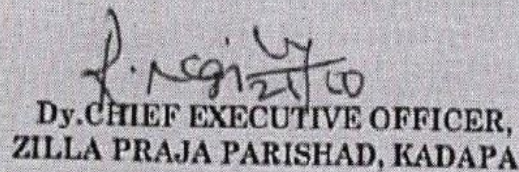 Dy.CHIEF EXECUTIVE OFFICER,
ZILLA PRAJA PARISHAD, KADAPA